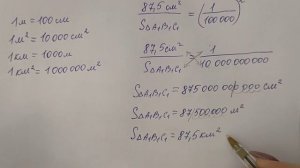 1м = 100см
1м² = 10 000 см²
1км = 1000м
1км² = 1 000 000 м²
87,5 см² / S△A₁B₁C₁ = (1 / 100 000)²
87,5 см² / S△A₁B₁C₁ = 1 / 10 000 000 000
S△A₁B₁C₁ = 875 000 000 000 см²
S△A₁B₁C₁ = 87 500 000 м²
S△A₁B₁C₁ = 87,5 км²